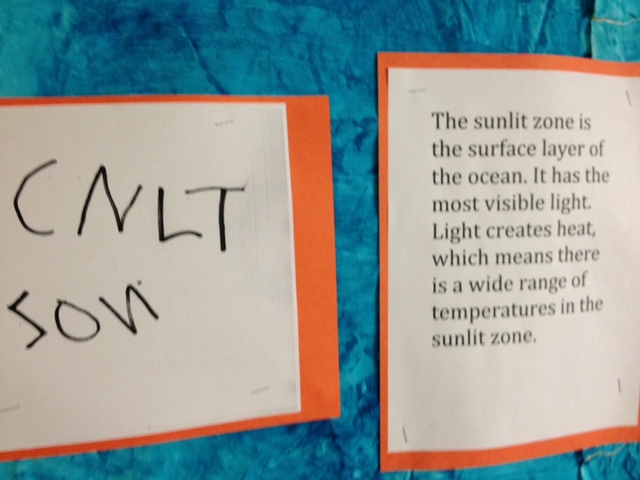 CNLT
SON
The sunlit zone is
the surface layer of
the ocean. It has the
most visible light.
Light creates heat,
which means there
is a wide range of
temperatures in the
sunlit zone.